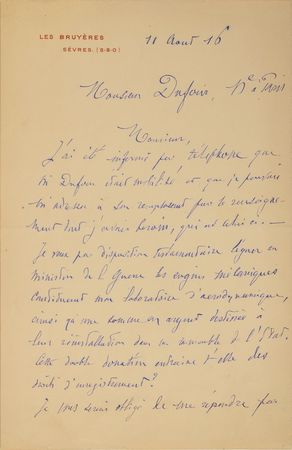 LES BRUYÈRES
SÈVRES. (S & O)
11 Aout 16
Monsieur Dufour, à Paris
Monsieur,
J'ai été informé par téléphone que
M Dufour était mobilisé et que je pouvais
m'adresser à son remplaçant pour le renseigne-
ment dont j'avais besoin, qui est celui-ci. —
Je veux par disposition testamentaire léguer au
Ministère de la Guerre les engins mécaniques
constituant mon laboratoire d'aérodynamique,
ainsi qu'une somme en argent destinée à
leur réinstallation dans un immeuble de l'Etat.
Cette double donation entraine t'elle des
droits d'enregistrement?
Je vous serais obligé de me répondre par